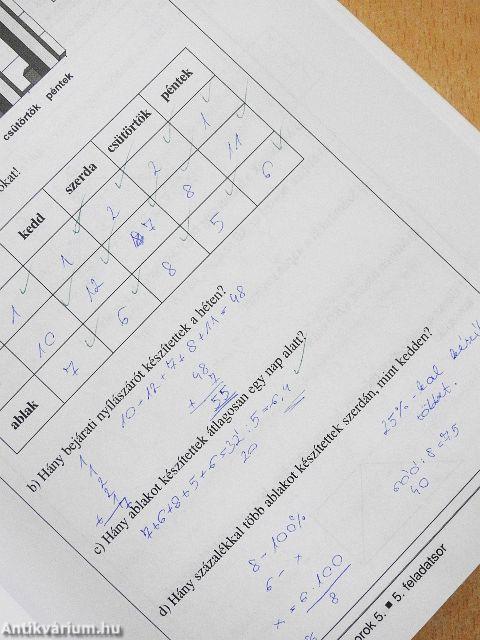 csütörtök péntek
okat!
kedd szerda csütörtök péntek
1 1 2 2 1
10 12 7 8 11
ablak 7 6 8 5 6
b) Hány bejárati nyílászárót készítettek a héten?
10+12+7+8+11=48
1
1
2
2
+1
7
48
+ 7
55
c) Hány ablakot készítettek átlagosan egy nap alatt?
7+6+8+5+6=32:5=6,4
20
d) Hány százalékkal több ablakot készítettek szerdán, mint kedden?
8-100%
6-x
x=6·100
8
600:8=75
40
25%-kal
többet.
orok 5. ■ 5. feladatsor
Antikvárium.hu